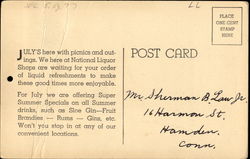 JULY'S here with picnics and out-
ings. We here at National Liquor
Shops are waiting for your order
of liquid refreshments to make
these good times more enjoyable.
For July we are offering Super
Summer Specials on all Summer
drinks, such as Sloe Gin—Fruit
Brandies — Rums — Gins, etc.
Won't you stop in at any of our
convenient locations.
POST CARD
PLACE
ONE CENT
STAMP
HERE
Mr. Sherman B Law Jr.
16 Harmon St.
Hamden.
Conn.